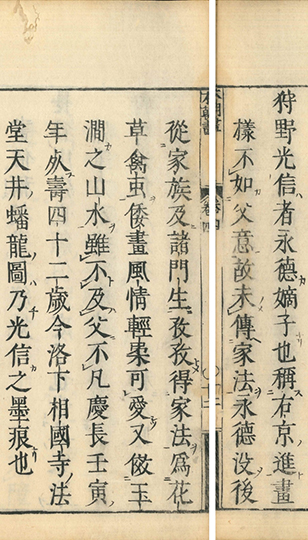 狩野光信者永德嫡子也稱右京進畫
樣不如父意故未傳家法永德没後
從家族及諸門生孜孜得家法為花
草禽虫倭畫風情輕柔可愛又倣玉
澗之山水雖不及父不凡慶長壬寅
年死壽四十二歲今洛下相國寺法
堂天井蟠龍圖乃光信之墨痕也